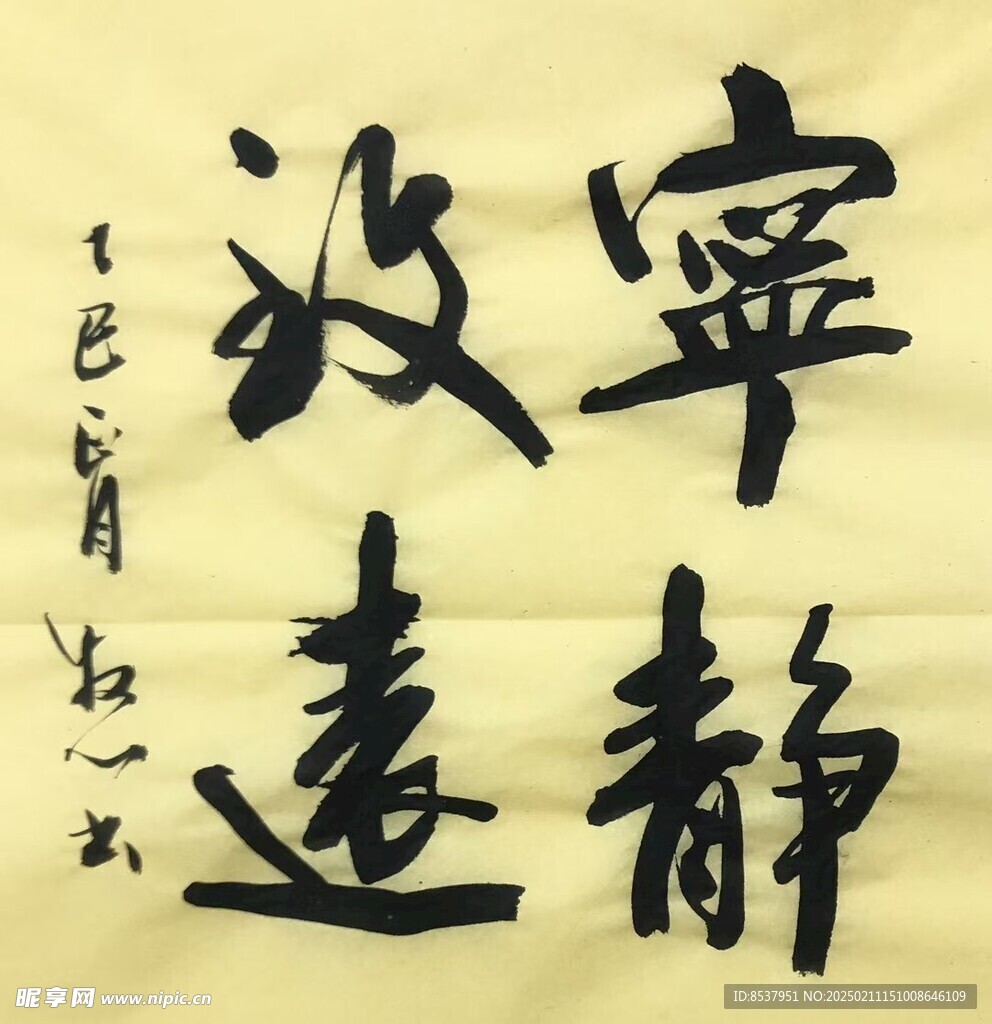 寧静
致遠
乙巳正月 牧心书
昵享网 www.nipic.cn
ID:8537951 NO:20250211151008646109